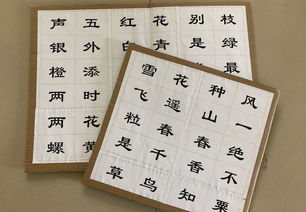 声 五 红 花 别 枝
银 外 青 是 绿
橙 添 最
两 时
两 花
螺 黄
雪 花 种 风
飞 遥 山 一
粒 春 春 绝
是 千 香 不
草 鸟 知 粟